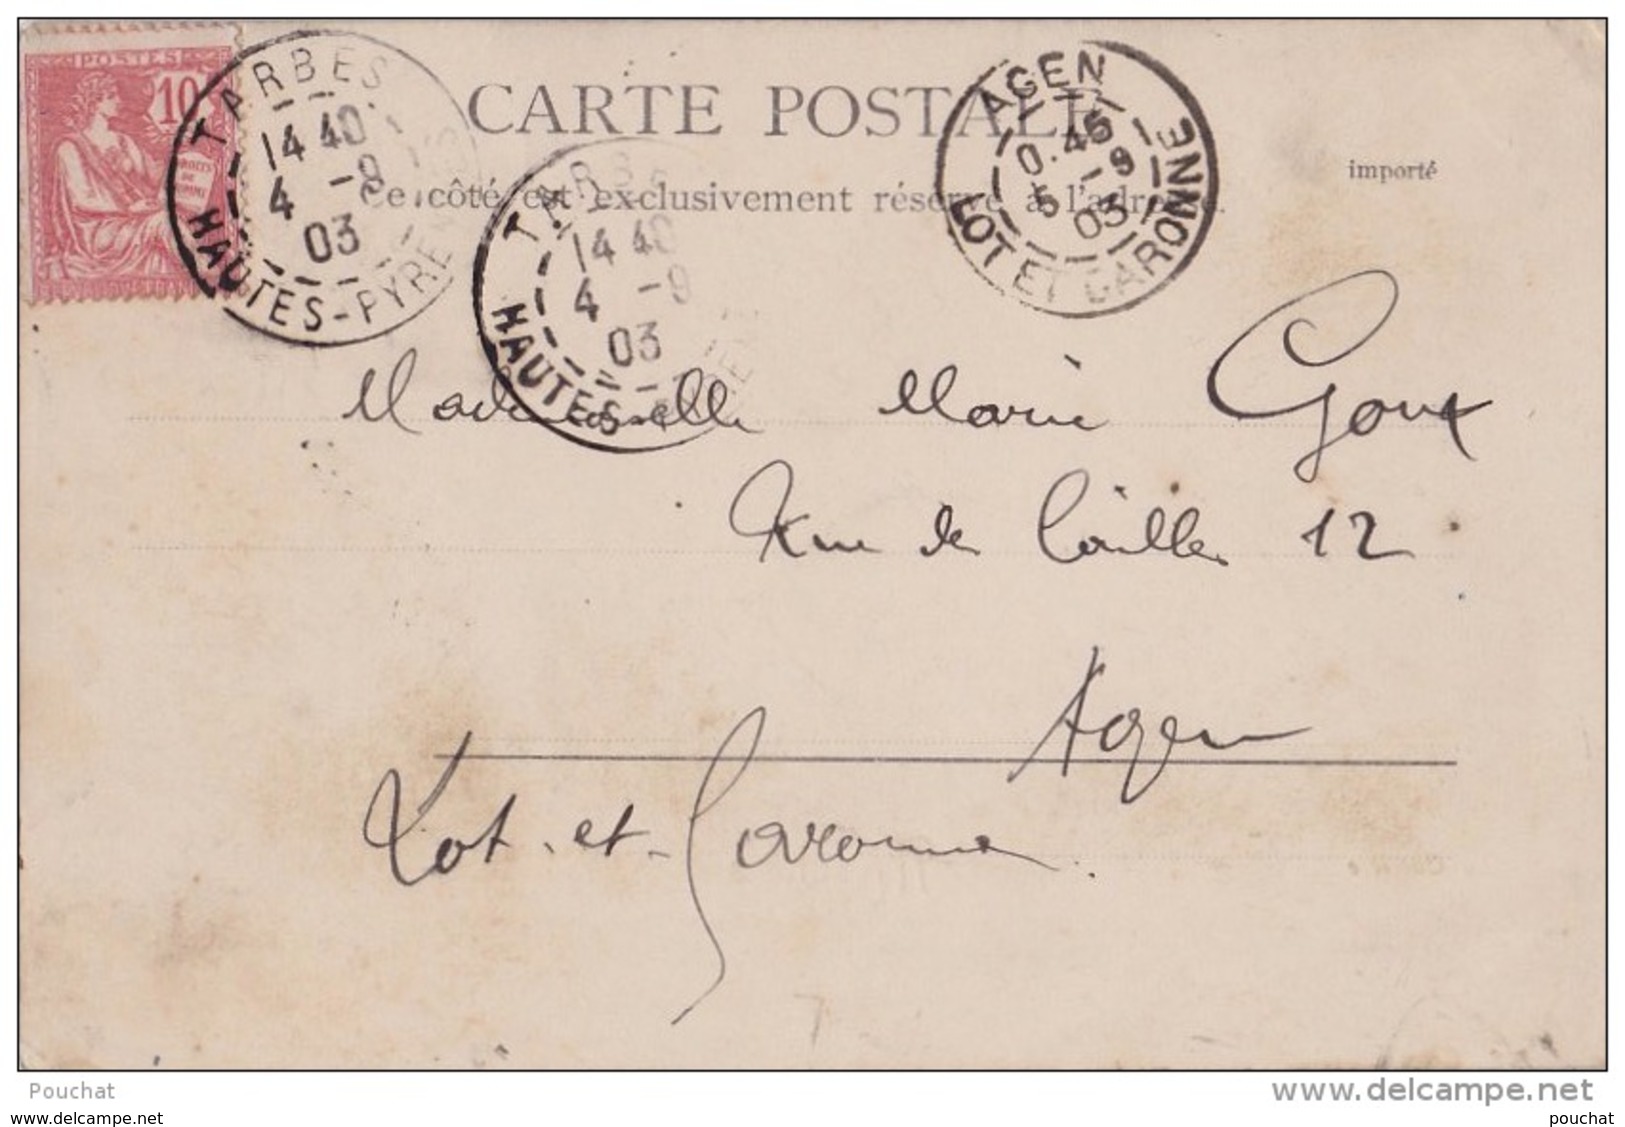 POSTES
10
DROITS
DE
TARBES
14 40
4 -9
03
HAUTES-PYRENEES
CARTE POSTALE
AGEN
0.45
5 -9
03
LOT ET GARONNE
importé
Ce côté est exclusivement réservé à l'adresse.
TARBES
14 40
4 -9
03
HAUTES-
Mademoiselle Marie Goux
Rue de 12
Agen
Lot-et-Garonne
Pouchat
www.delcampe.net
www.delcampe.net
pouchat